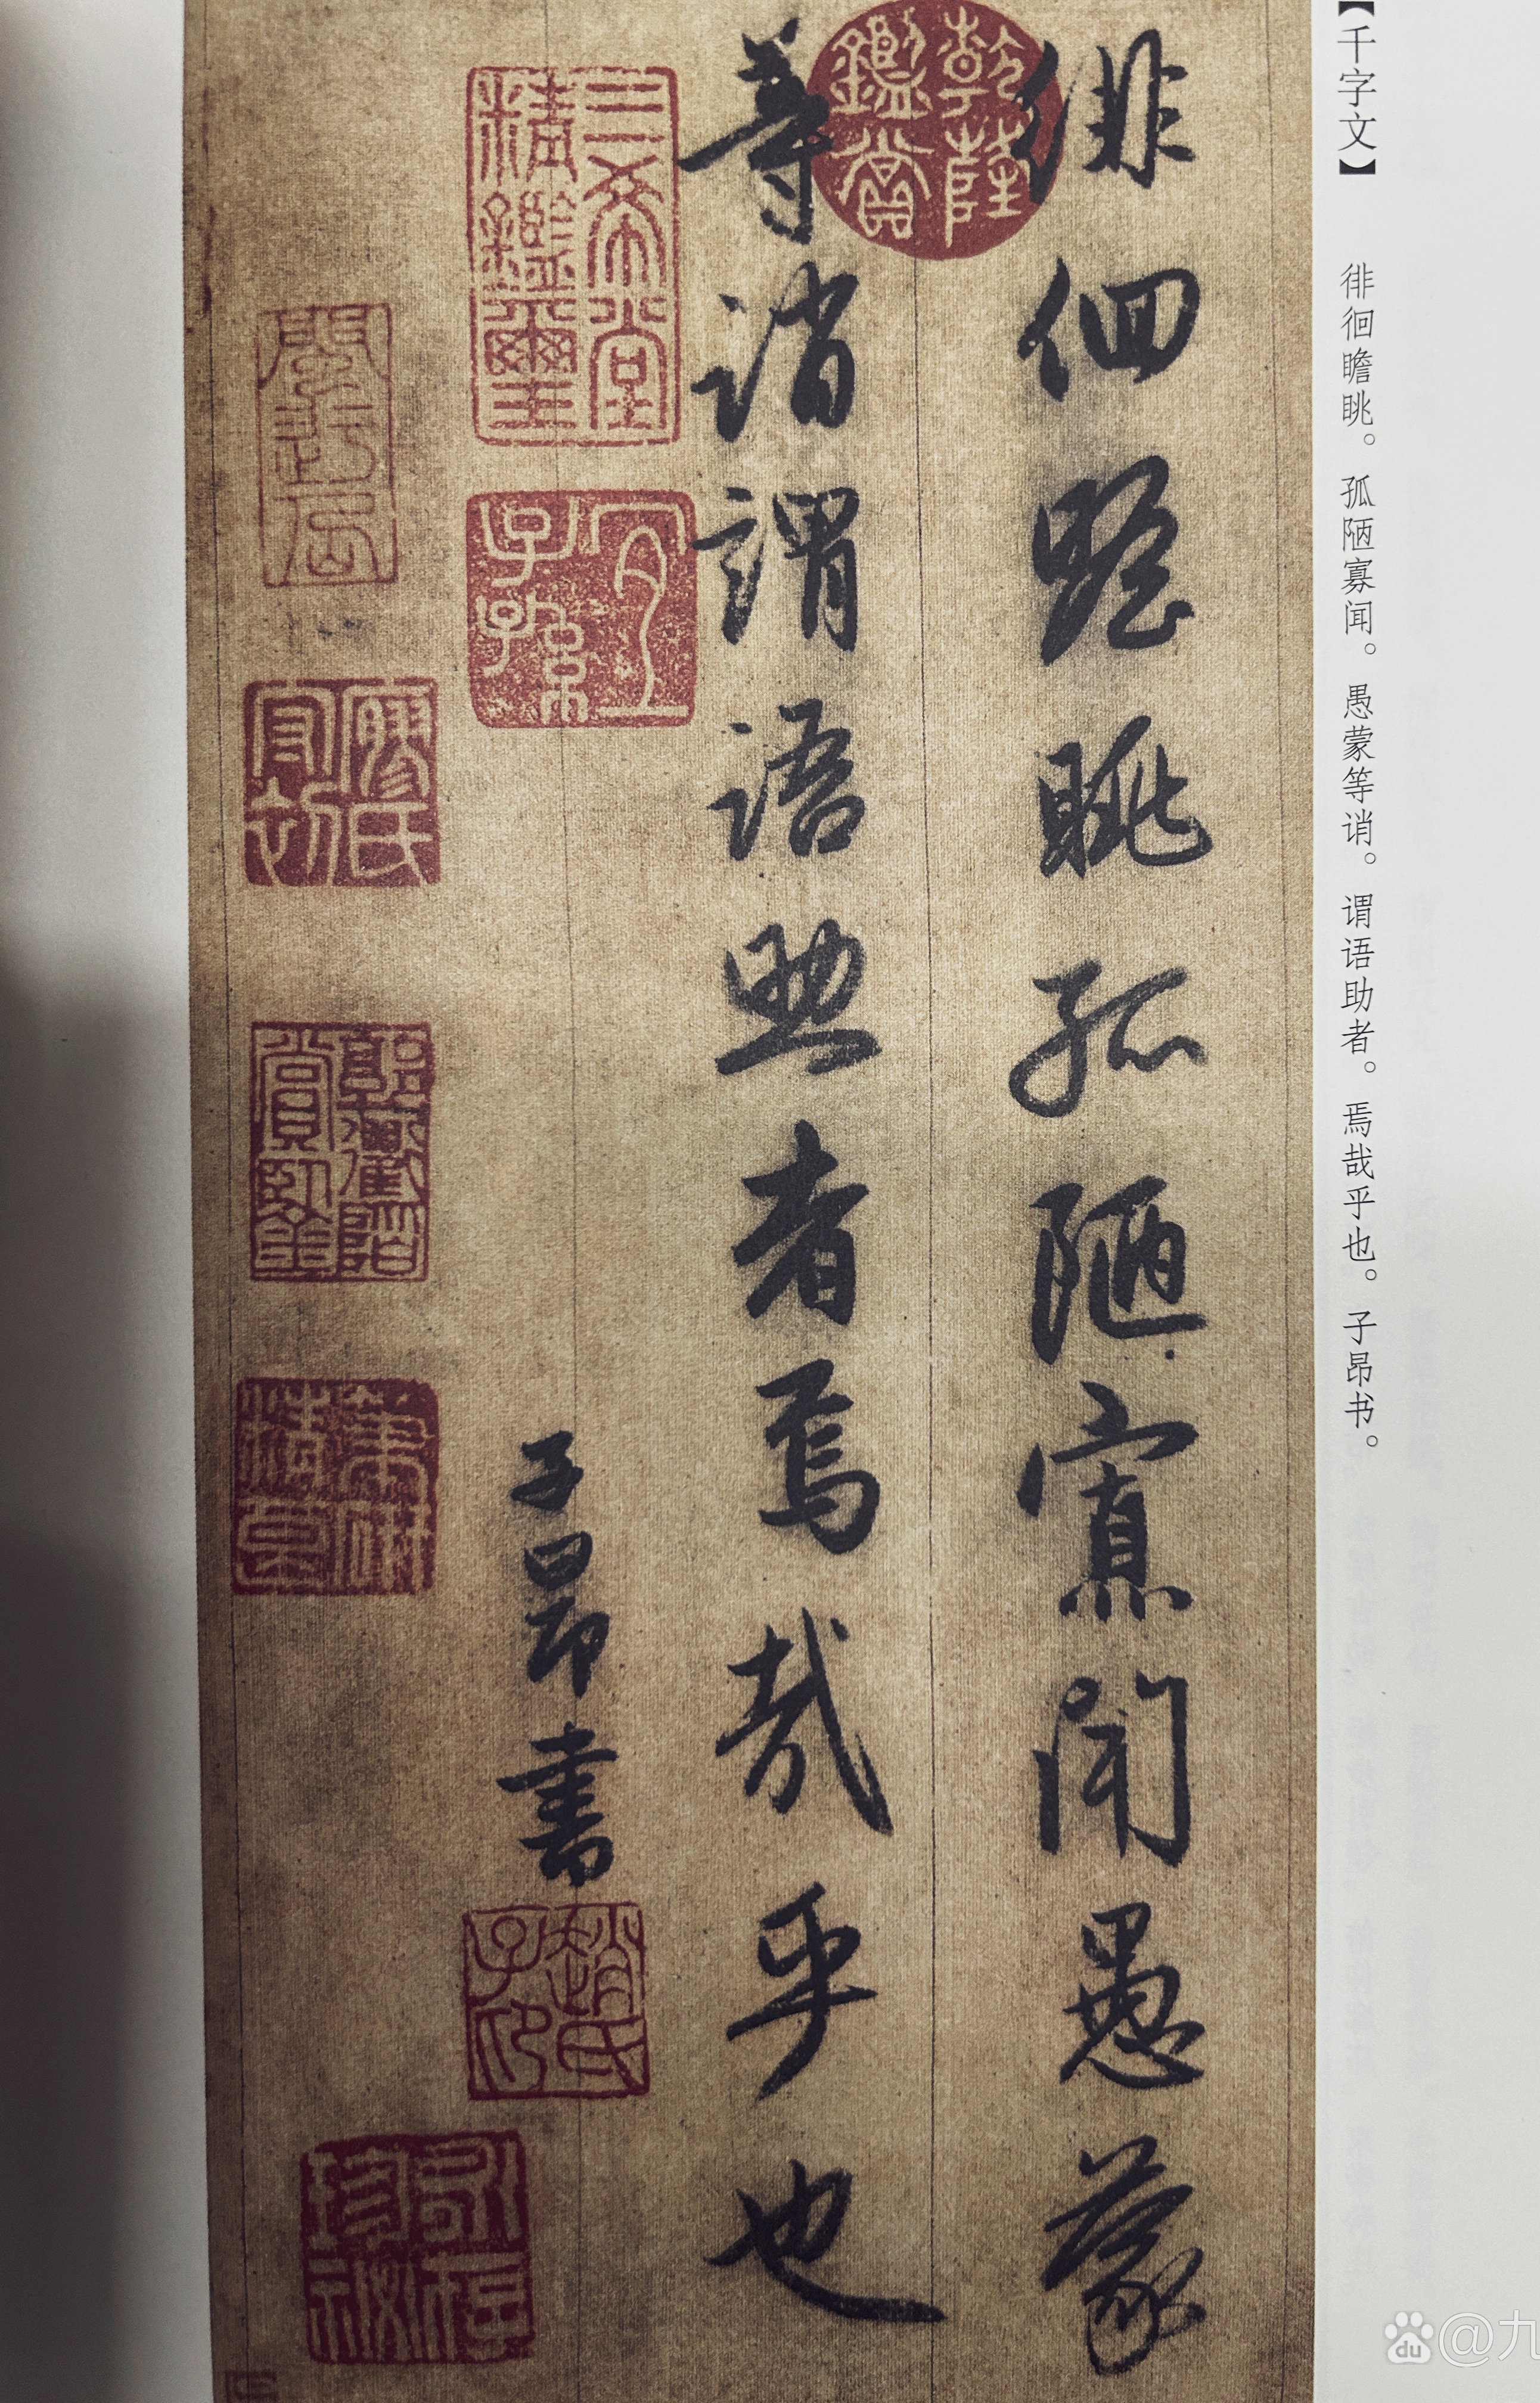 【千字文】 徘徊瞻眺。孤陋寡闻。愚蒙等诮。谓语助者。焉哉乎也。子昂书。
徘徊瞻眺孤陋寡聞愚蒙
等誚謂語助者焉哉乎也
子昂書
乾隆鑑賞
三希堂精鑑璽
宜子孫
趙氏子印
@九
du